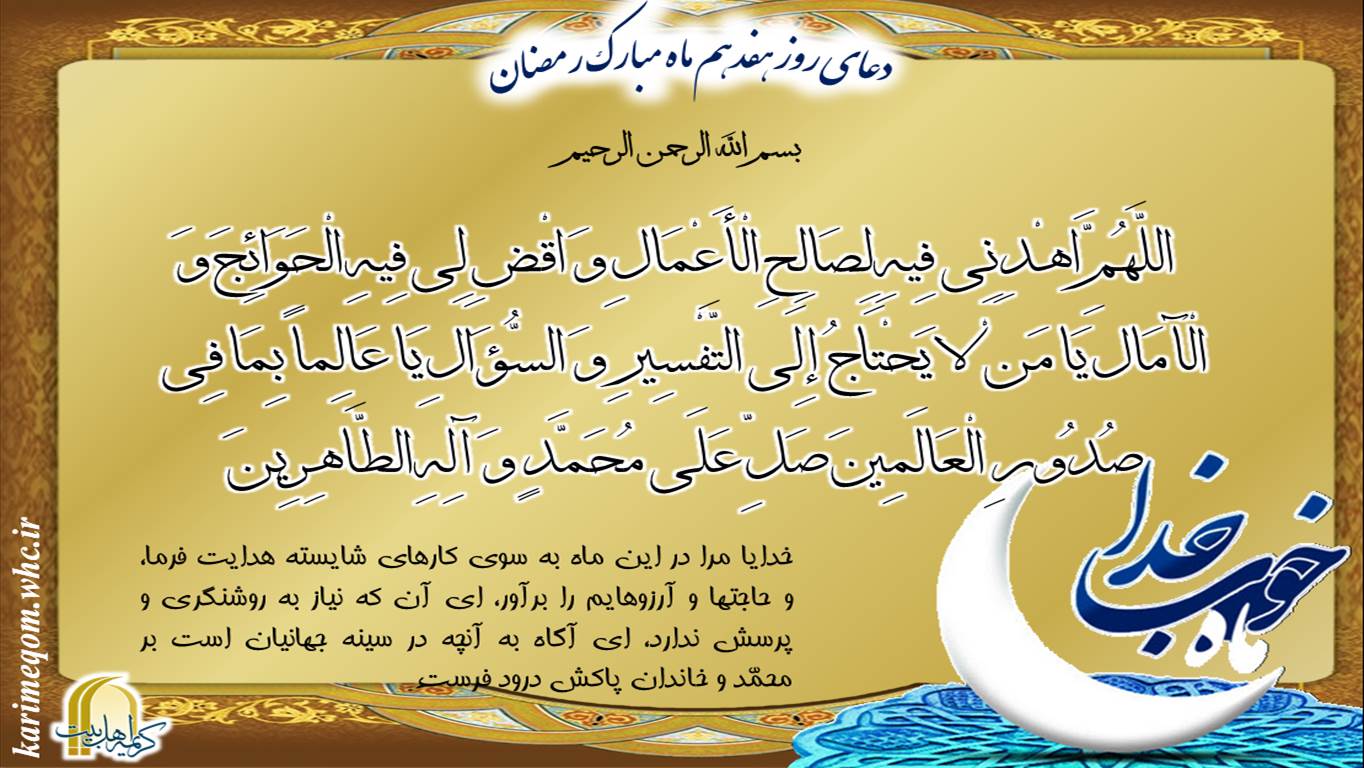 دعای روز هفدهم ماه مبارک رمضان
بسم الله الرحمن الرحیم
اللَّهُمَّ اهْدِنِی فِیهِ لِصَالِحِ الْأَعْمَالِ وَ اقْضِ لِی فِیهِ الْحَوَائِجَ وَ
الْآمَالَ یَا مَنْ لا یَحْتَاجُ إِلَی التَّفْسِیرِ وَ السُّؤَالِ یَا عَالِماً بِمَا فِی
صُدُورِ الْعَالَمِینَ صَلِّ عَلَی مُحَمَّدٍ وَ آلِهِ الطَّاهِرِینَ
خدایا مرا در این ماه به سوی کارهای شایسته هدایت فرما،
و حاجتها و آرزوهایم را برآور، ای آن که نیاز به روشنگری و
پرسش ندارد، ای آگاه به آنچه در سینه جهانیان است بر
محمّد و خاندان پاکش درود فرست.
ماه خوب خدا
کریمه اهل بیت
karimeqom.whc.ir